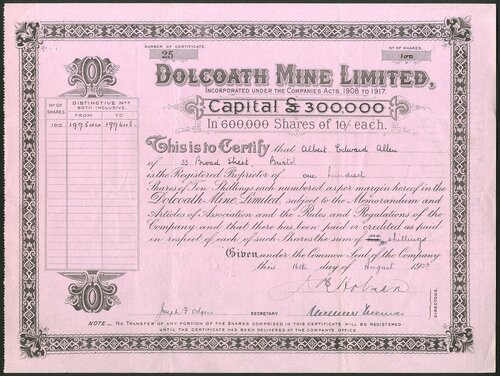 NUMBER OF CERTIFICATE.
25
Nº OF SHARES.
100
DOLCOATH MINE LIMITED,
INCORPORATED UNDER THE COMPANIES ACTS, 1908 TO 1917.
Capital £300,000
In 600,000 Shares of 10/- each.
Nº OF SHARES
DISTINCTIVE Nºs BOTH INCLUSIVE.
FROM
TO
100
This is to Certify that Albert Edward Allen
of 33 Broad Street, Bristol
is the Registered Proprietor of one hundred
Shares of Ten Shillings each numbered as per margin hereof in the
Dolcoath Mine, Limited, subject to the Memorandum and
Articles of Association and the Rules and Regulations of the
Company and that there has been paid or credited as paid
in respect of each of such Shares the sum of shillings
Given under the Common Seal of the Company
this 16th day of August
Holman
DIRECTORS.
Joseph F Odgers
SECRETARY
NOTE - NO TRANSFER OF ANY PORTION OF THE SHARES COMPRISED IN THIS CERTIFICATE WILL BE REGISTERED
UNTIL THE CERTIFICATE HAS BEEN DELIVERED AT THE COMPANY'S OFFICE